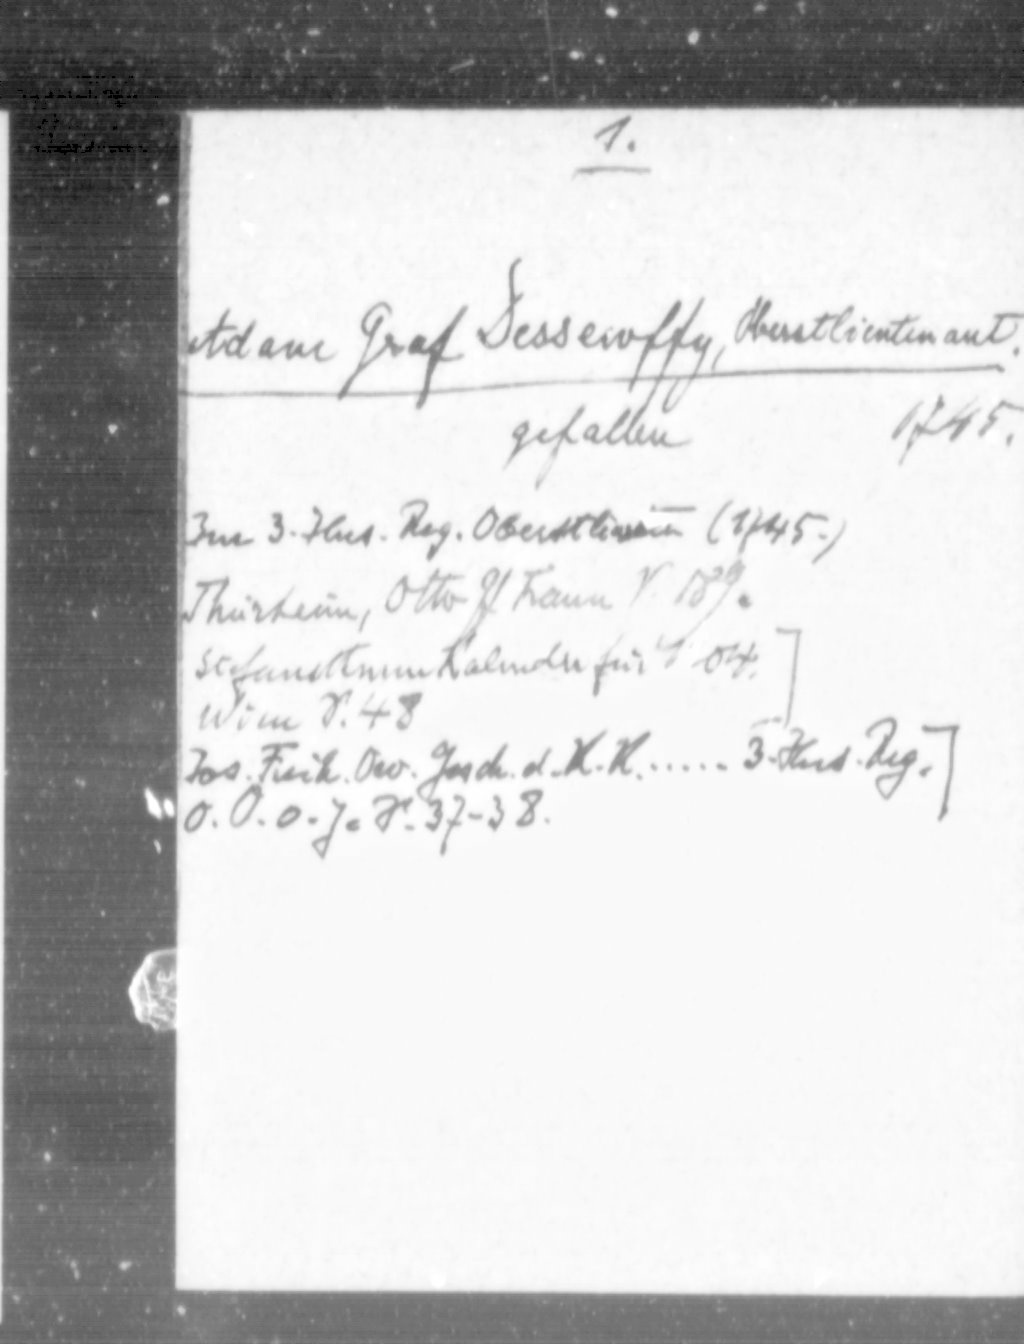 1.
Adam Graf Dessewffy, Oberstlieutenant.
gefallen 1745.
Im 3. Hus. Reg. Oberstlieut (1745.)
Thürheim, Otto Gf Traun S. 189.
Kalender für 04.
Wien S. 48
Jos. Gesch. d. K. K. ..... 3. Hus. Reg.
O. O. o. J. S. 37-38.